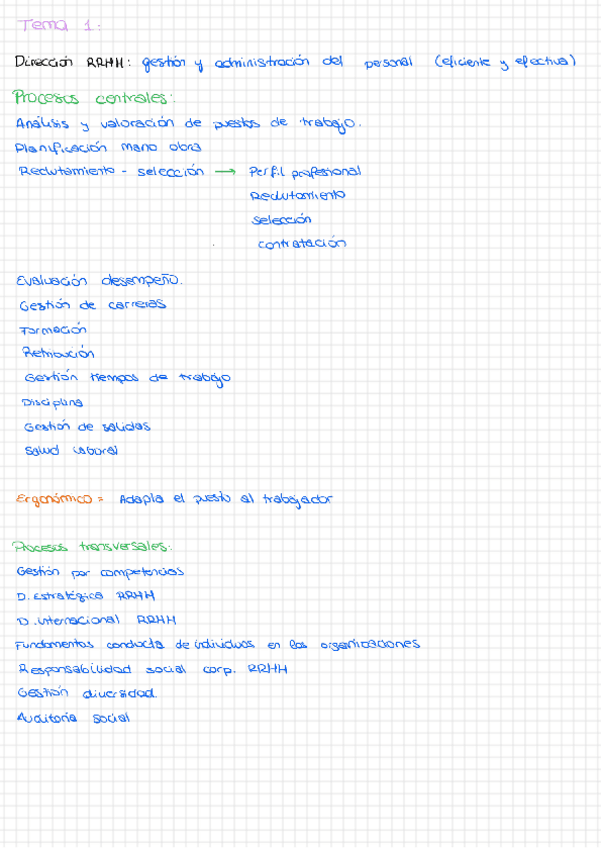 Tema 1:
Dirección RRHH: gestión y administración del personal (eficiente y efectiva)
Procesos centrales:
Análisis y valoración de puestos de trabajo.
Planificación mano obra
Reclutamiento - selección → Perfil profesional
Reclutamiento
Selección
Contratación
Evaluación desempeño.
Gestión de carreras
Formación
Retribución
Gestión tiempos de trabajo
Disciplina
Gestión de salidas
Salud laboral
Ergonómico = Adapta el puesto al trabajador
Procesos transversales:
Gestión por competencias
D. Estratégica RRHH
D. internacional RRHH
Fundamentos conducta de individuos en las organizaciones
Responsabilidad social corp. RRHH
Gestión diversidad.
Auditoría social